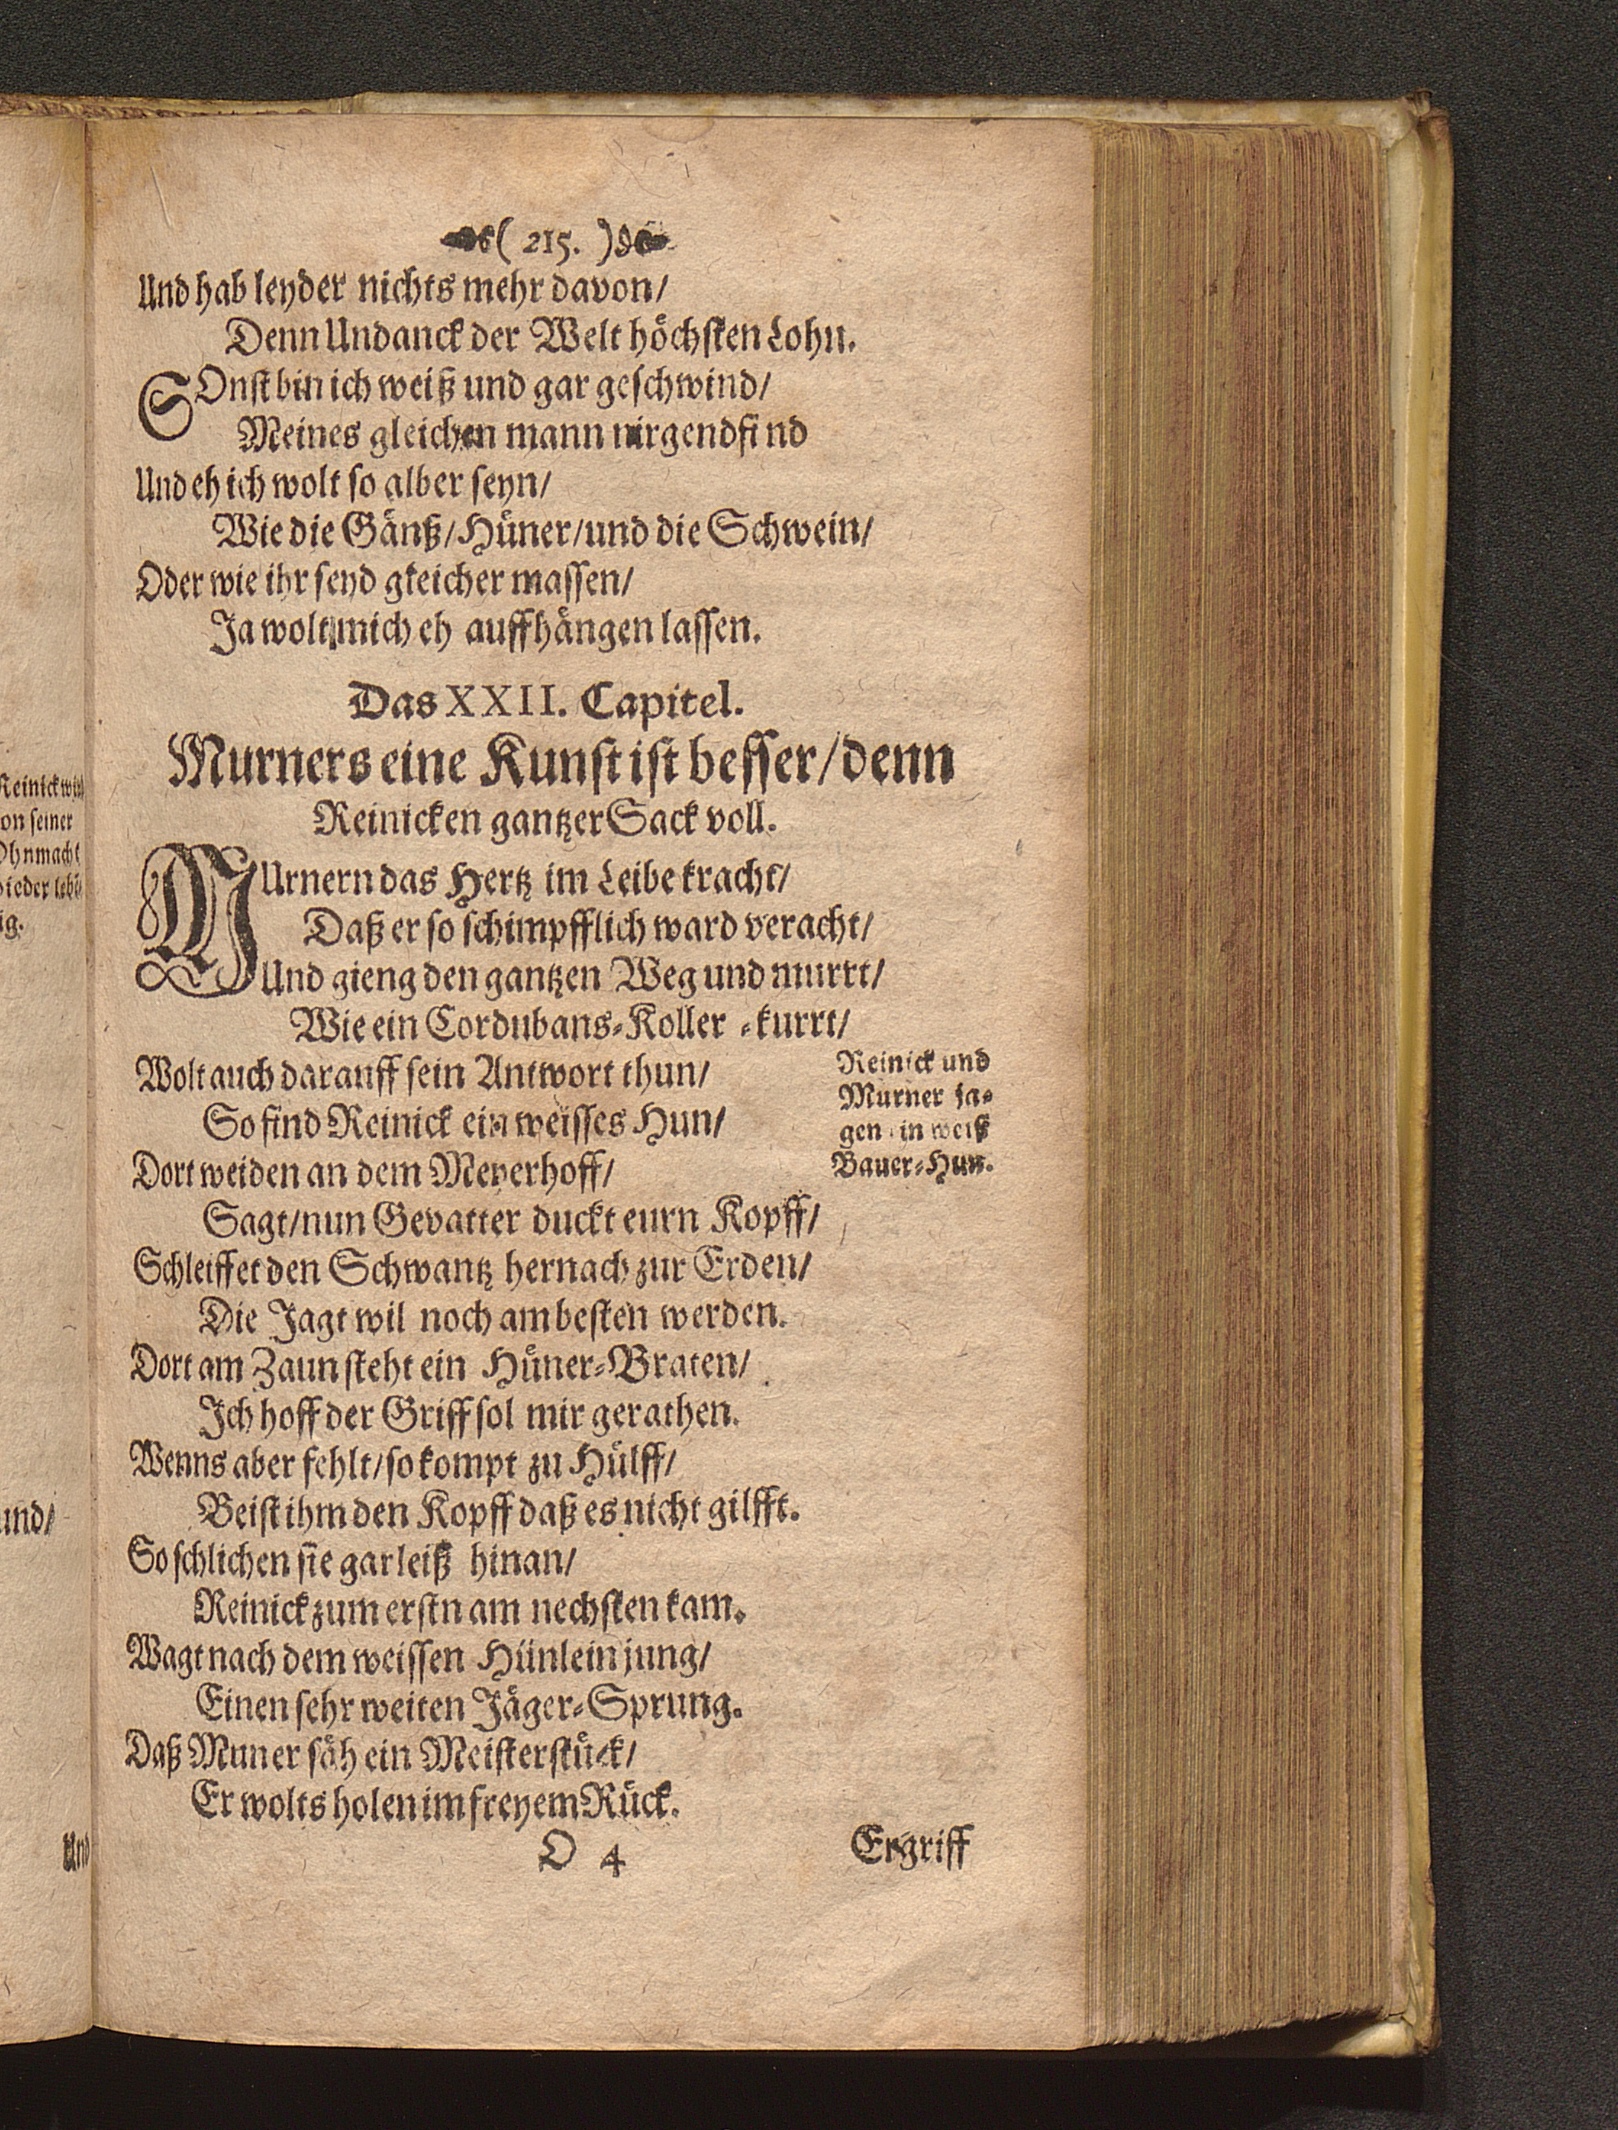 ( 215. )
Und hab leyder nichts mehr davon/
Denn Undanck der Welt höchsten Lohn.
SOnst bin ich weiß und gar geschwind/
Meines gleichen mann nirgend find
Und eh ich wolt so alber seyn/
Wie die Gänß/ Hüner/ und die Schwein/
Oder wie ihr seyd gleicher massen/
Ja wolt mich eh auffhängen lassen.
Das XXII. Capitel.
Murners eine Kunst ist besser/ denn
Reinicken gantzer Sack voll.
MUrnern das Hertz im Leibe kracht/
Daß er so schimpfflich ward veracht/
Und gieng den gantzen Weg und murrt/
Wie ein Cordubans-Koller -kurrt/
Wolt auch darauff sein Antwort thun/
So find Reinick ein weisses Hun/
Dort weiden an dem Meyerhoff/
Sagt/ nun Gevatter duckt eurn Kopff/
Schleiffet den Schwantz hernach zur Erden/
Die Jagt wil noch am besten werden.
Dort am Zaun steht ein Hüner-Braten/
Ich hoff der Griff sol mir gerathen.
Wenns aber fehlt/ so kompt zu Hülff/
Beist ihm den Kopff daß es nicht gilfft.
So schlichen sie gar leiß hinan/
Reinick zum erstn am nechsten kam.
Wagt nach dem weissen Hünlein jung/
Einen sehr weiten Jäger-Sprung.
Daß Muner säh ein Meisterstück/
Er wolts holen im freyem Rück.
Reinick und
Murner ja-
gen ein weiß
Bauer-Hun.
O 4
Ergriff
on seiner
Ohnmacht
ig.
und/
Und